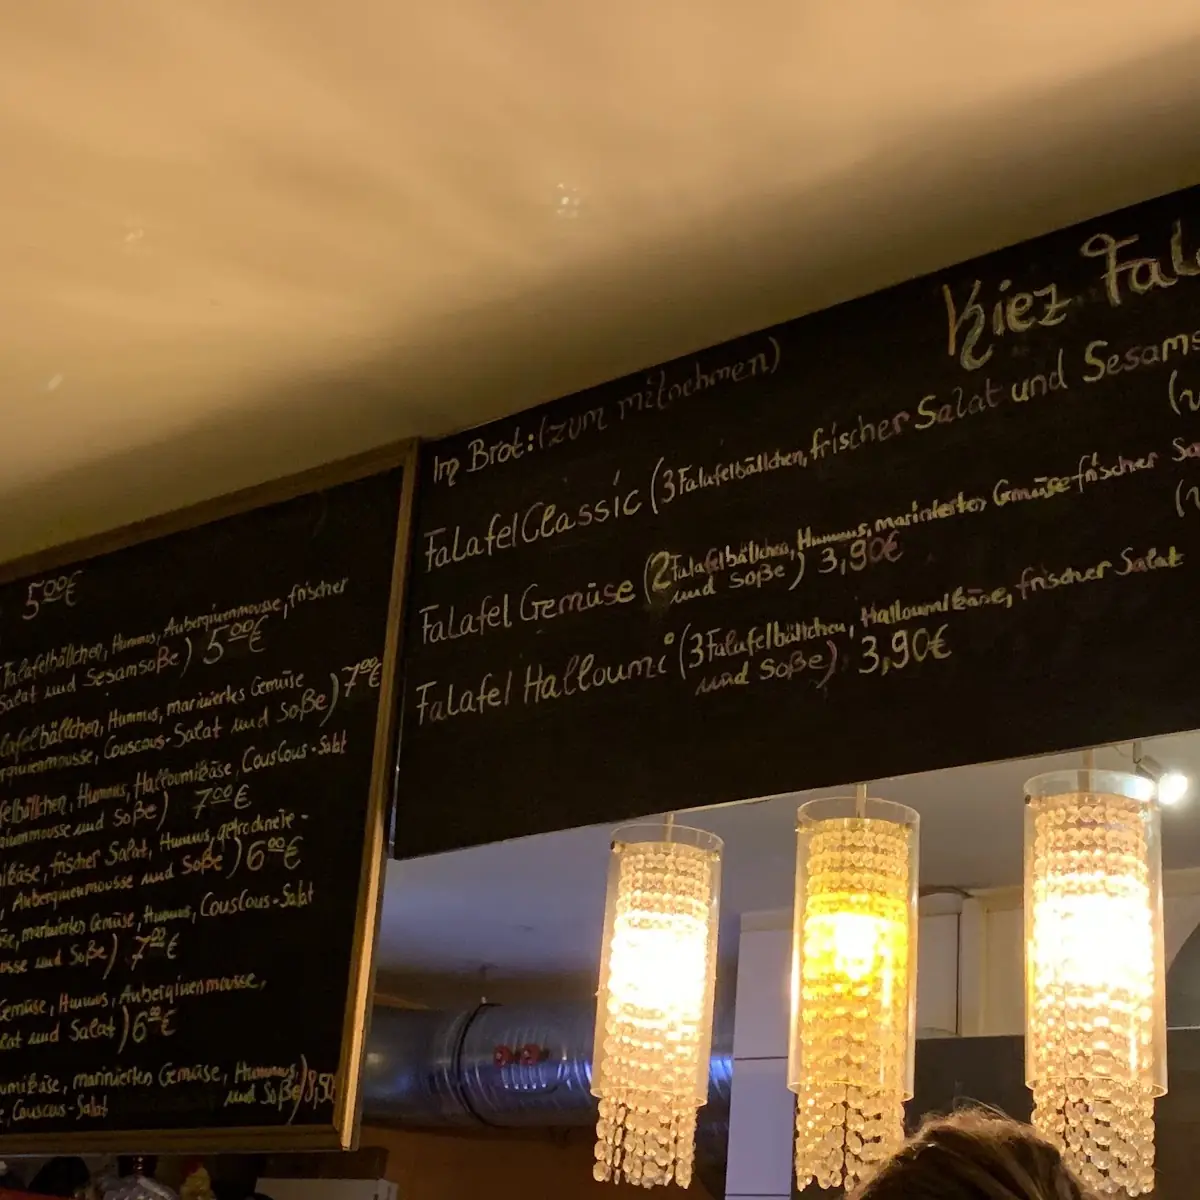 5⁰⁰€
Falafelbällchen, Hummus, Auberginenmousse, frischer
Salat und Sesamsoße) 5⁰⁰€
bällchen, Hummus, mariniertes Gemüse
Couscous-Salat und Soße) 7⁰⁰€
Hummus, Halloumikäse, CousCous-Salat
und Soße) 7⁰⁰€
frischer Salat, Humus, getrocknete-
, Auberginenmousse und Soße) 6⁰⁰€
mariniertes Gemüse, Humus, CousCous-Salat
und Soße) 7⁰⁰€
Gemüse, Humus, Auberginenmousse,
und Salat) 6⁰⁰€
mariniertes Gemüse, Hummus,
Couscous-Salat und Soße) 8,50
Kiez
Im Brot: (zum mitnehmen)
Falafel Classic (3 Falafelbällchen, frischer Salat und
Falafel Gemüse (2 Falafelbällchen, Hummus, mariniertes Gemüse frischer
und Soße) 3,90€
Falafel Halloumi (3 Falafelbällchen, Halloumikäse, frischer Salat
und Soße) 3,90€